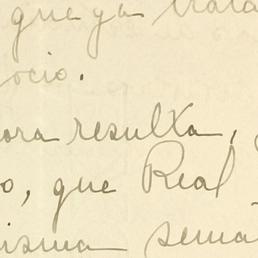 que ya trata
ocio.
ora resulta,
o, que Real
isma sema